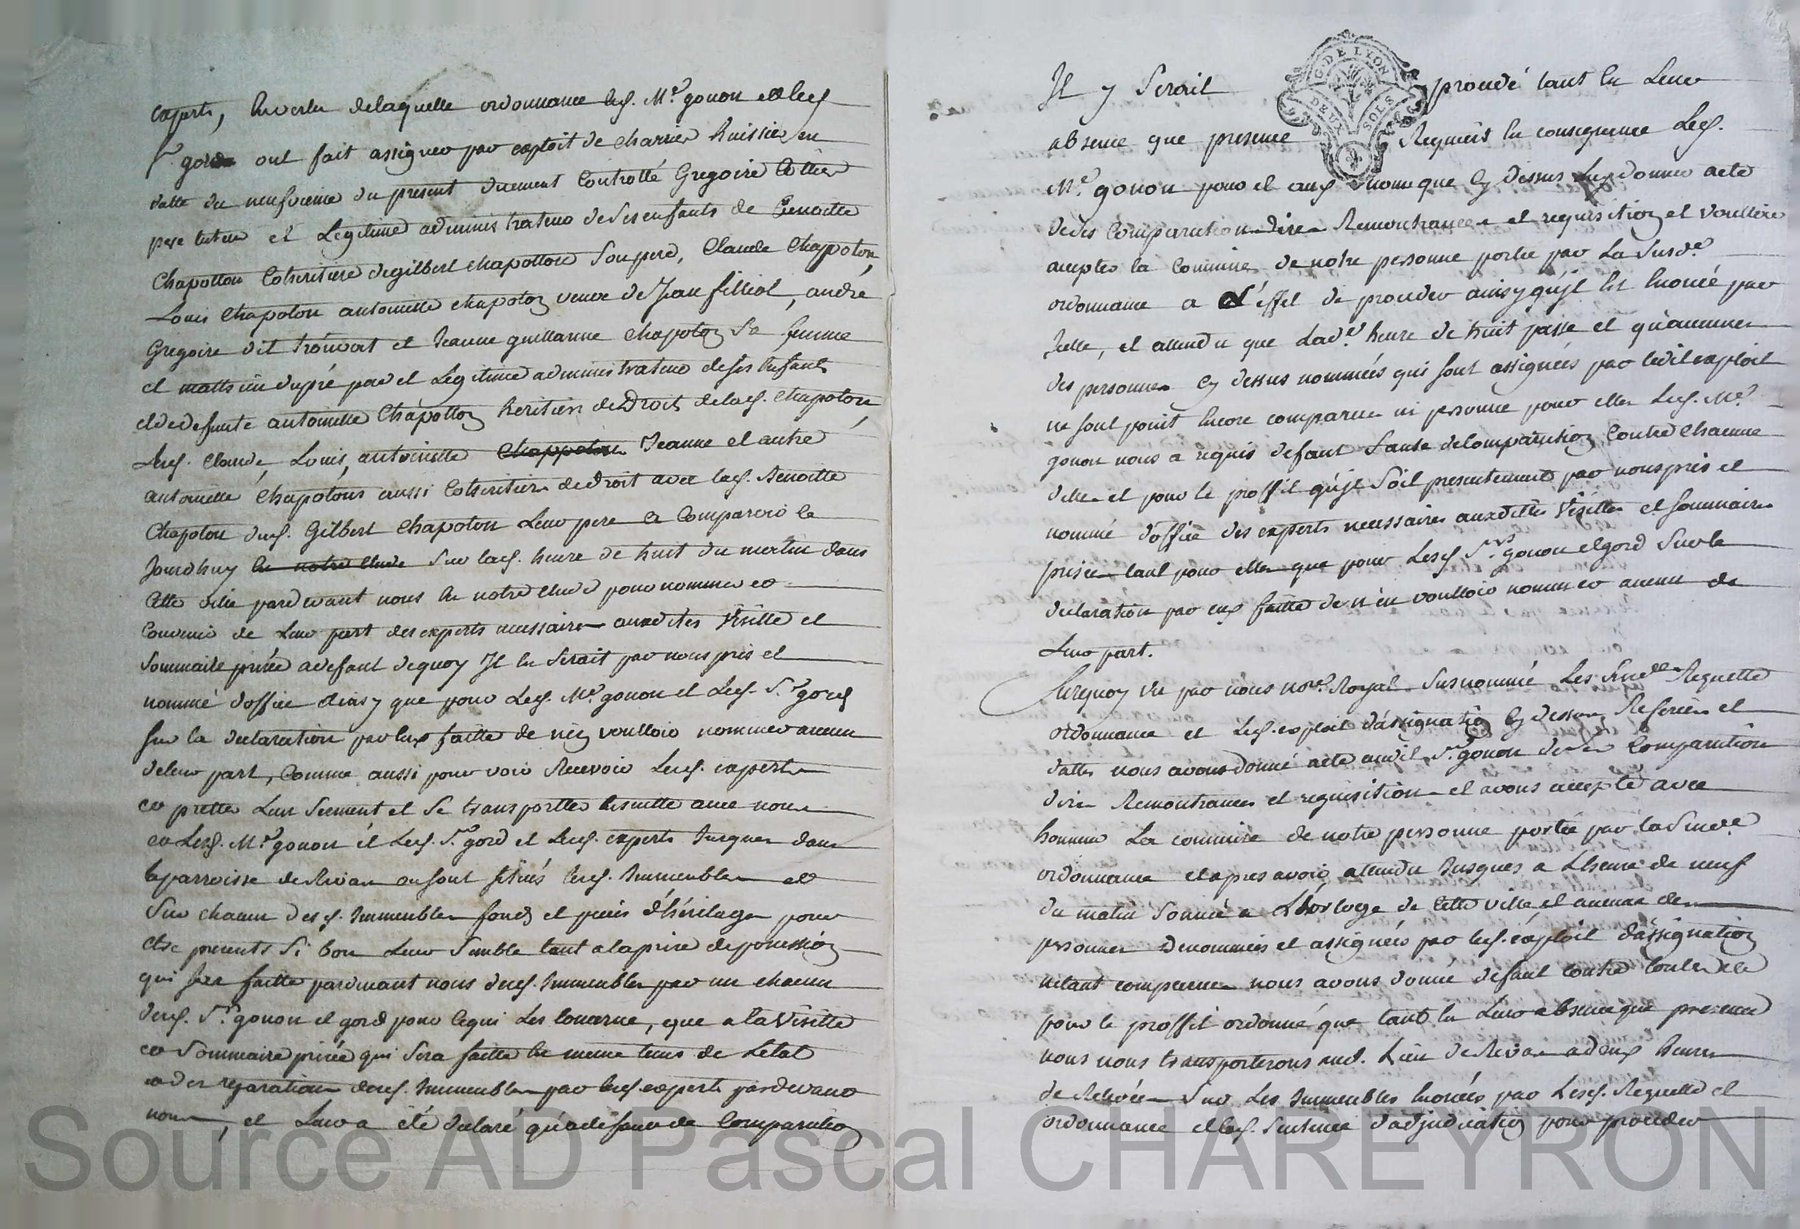 experts, En vertu de laquelle ordonnance lesd. Me. gonon et led.
Sr. gord ont fait assigner par exploit de charrier huissier en
datte du neufvieme du present duement Controllé Gregoire Cottier
pere tuteur et Legitime administrateur de ses enfants de Benoitte
Chapotton Coheritiere de gilbert chapotton Son pere, Claude Chapoton,
Louis Chapoton antoinette chapoton veuve de Jean filliol, andré
Gregoire dit et Jeanne guillaume Chapoton Sa femme
et matthieu dupré pere et Legitime administrateur de ses Enfants
et de defunte antoinette Chapotton heritiers de Droit de lad. Chapoton,
Lesd. Claude, Louis, antoinette Chappoton Jeanne et autre
antoinette Chapotons aussi Coheritiers de droit avec lad. Benoitte
Chapoton dud. Gilbert Chapoton Leur pere a Comparoir ce
Jourdhuy en notre Etude Sur lad. heure de huit du matin dans
Cette ville pardevant nous En notre Etude pour nommer et
Convenir de Leur part des experts necessaires auxdites Visitte et
Sommaire prisée a defaut de quoy Il En Serait par nous pris et
nommé d'office ainsy que pour Lesd. Me. gonon et Led. Sr. gord
Sur la declaration par Eux faitte de n'en voulloir nommer aucun
de leur part, Comme aussi pour voir Recevoir Lesd. experts
et pretter Leur Serment et Se transportter Ensuitte avec nous
et Lesd. Me. gonon et Led. Sr. gord et Lesd. experts Jusques dans
la parroisse de Rivas ou sont situés lesd. Immeubles et
Sur chacun desd. Immeubles fonds et pieces d'héritages pour
etre presents Si bon Leur Semble tant a la prise de possession
qui sera faitte pardevant nous desd. Immeubles par un chacun
desd. Srs. gonon et gord pour ce qui Les Concerne, que a la Visitte
et Sommaire prisée qui Sera faitte En meme tems de L'etat
et des reparations desd. Immeubles par lesd. experts pardevant
nous, et Leur a été declaré qu'a defaut de Comparution
Il y Serait procedé tant En Leur
absence que presence Requiert En consequence Led.
Me. gonon pour et aux noms que Cy dessus luy donner acte
de ses Comparution dires Remontrances et requisition et voulloir
accepter la Commission de notre personne portée par La Susd.
ordonnance a L'effet de proceder ainsy qu'il Est Enoncé par
Icelle, et attendu que Lad. heure de huit passé et qu'aucunes
des personnes Cy dessus nommées qui sont assignées par ledit exploit
ne sont point Encore comparues ni personne pour elles Led. Me.
gonon nous a requis defaut faute de Comparution Contre Chacune
d'elles et pour le proffit qu'il Soit presentement par nous pris et
nommé d'office des experts necessaires auxdittes Visitte et sommaire
prisée tant pour elles que pour Lesd. Srs. gonon et gord Sur la
declaration par eux faitte de n'en voulloir nommer aucun de
Leur part.
Surquoy vu par nous nore. Royal Susnommé Les Susd. Requette
ordonnance et Led. exploit d'assignation Cy dessus Referés et
dattés nous avons donné acte audit Sr. gonon de ses Comparution
dires Remontrances et requisition et avons accepté avec
honneur La commission de notre personne portée par la Susd.
ordonnance et apres avoir attendu Jusques a L'heure de neuf
du matin Sonnée a L'horloge de Cette ville et aucune des
personnes Denommées et assignées par led. exploit d'assignation
n'etant comparues nous avons donné defaut Contre toutes et
pour le proffit ordonné que tant En Leur absence que presence
nous nous transporterons aud. Lieu de Rivas a deux heures
de Relevée Sur Les Immeubles Enoncés par Lesd. Requette et
ordonnance et lad. Sentence d'adjudication pour proceder
G. DE LYON
DEUX SOLS
Source AD Pascal CHAREYRON